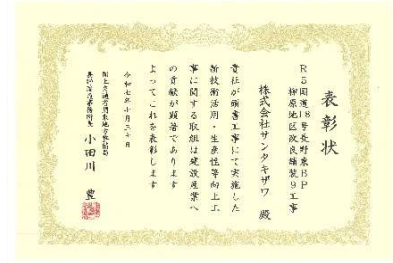 表彰状
R5国道18号長野東BP
柳原地区改良舗装9工事
株式会社サンタキザワ 殿
貴社が頭書工事にて実施した
新技術活用・生産性等向上工
事に関する取組は建設産業へ
の貢献が顕著であります
よってこれを表彰します
令和七年十月三十日
国土交通省関東地方整備局
長野国道事務所長 小田川 豊